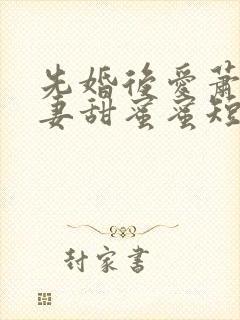 先婚後愛蕭
妻甜蜜蜜短
封家書